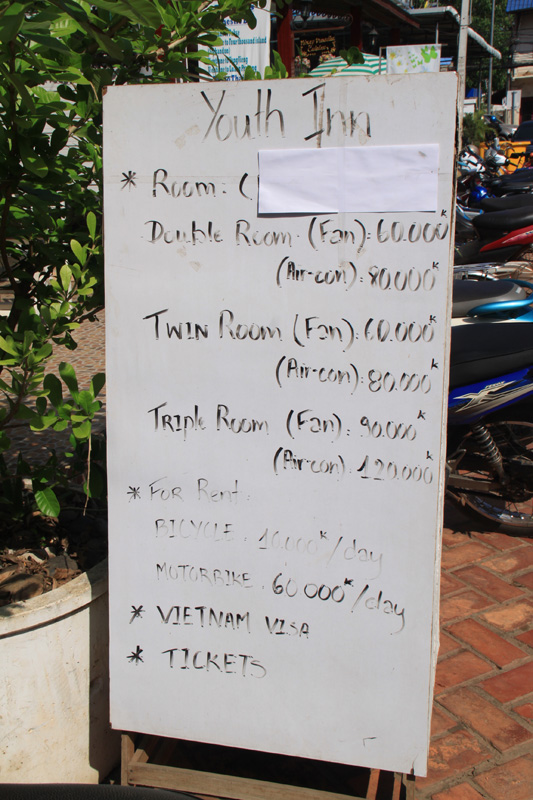 Youth Inn
* Room: (
Double Room. (Fan): 60.000K
(Air-con): 80.000K
TWIN Room (Fan): 60.000K
(Air-con): 80.000K
TRIPLE Room (Fan): 90.000K
(Air-con): 120.000K
* FOR Rent:
BICYCLE. 10.000K/day
MOTORBIKE. 60.000K/day
* VIETNAM VISA
* TICKETS